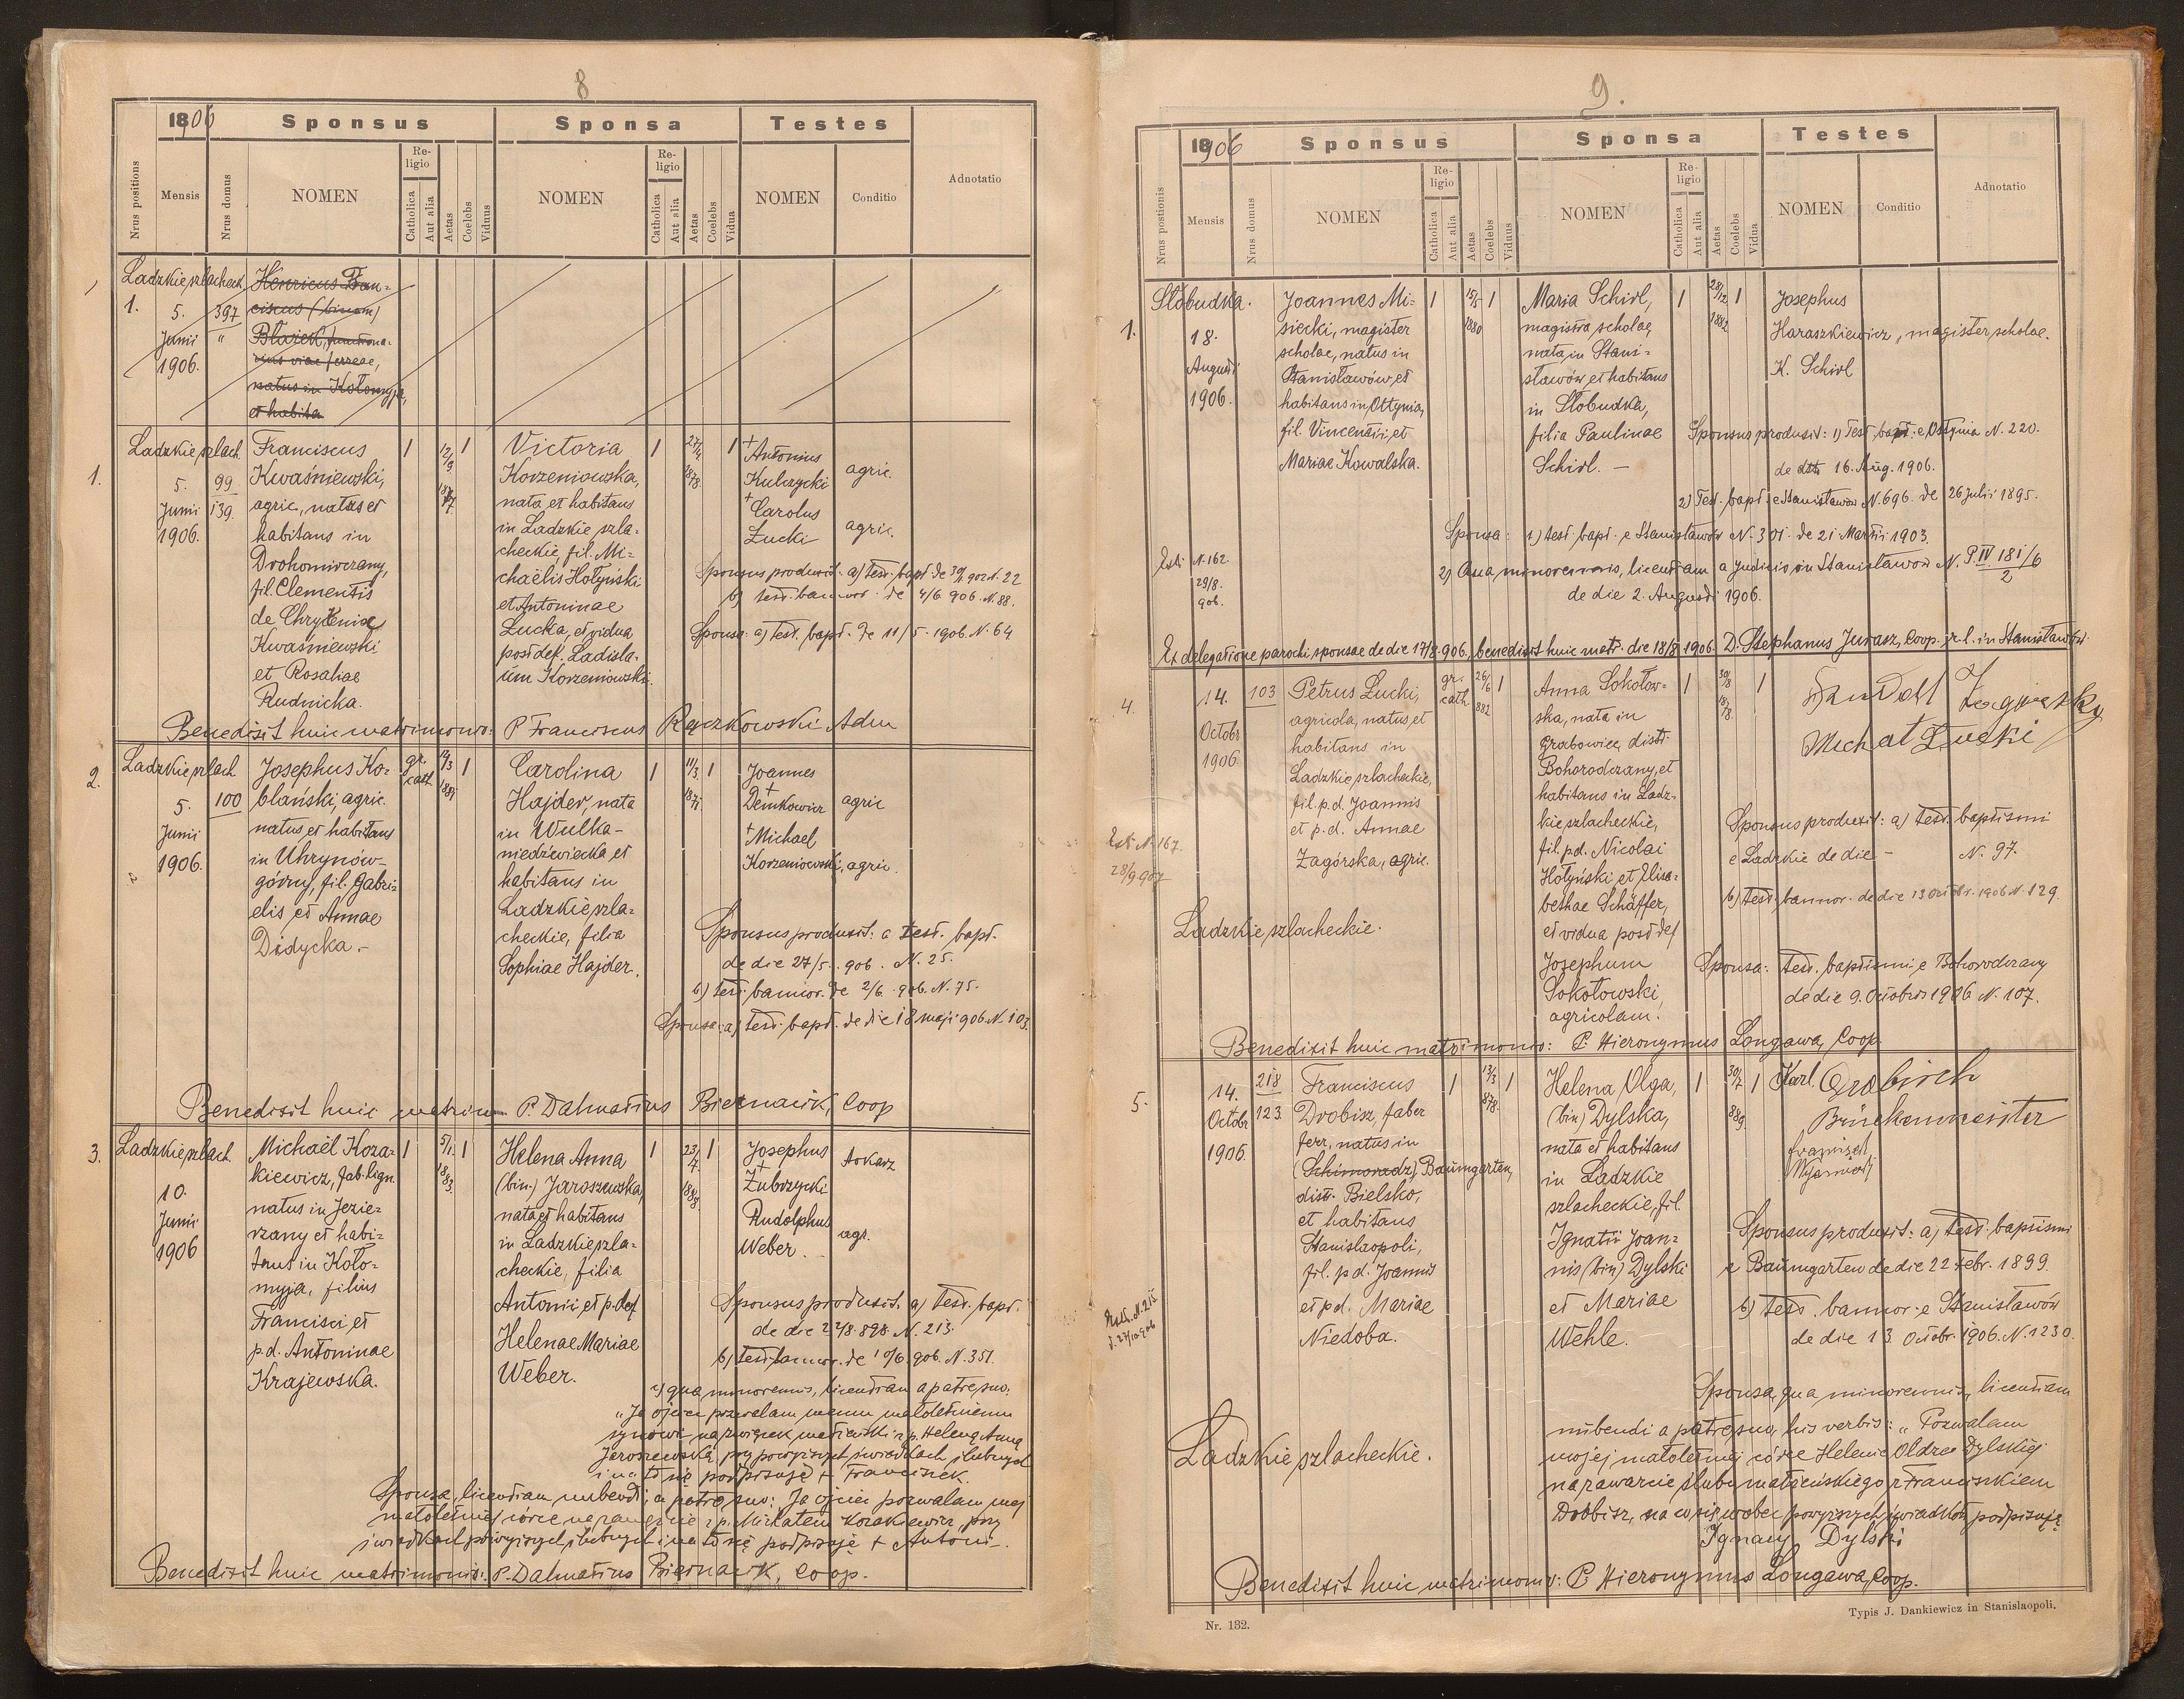 8
1906
Sponsus
Sponsa
Testes
Nrus positionis
Mensis
Nrus domus
NOMEN
Religio
Catholica
Aut alia
Aetas
Coelebs
Viduus
NOMEN
Religio
Catholica
Aut alia
Aetas
Coelebs
Vidua
NOMEN
Conditio
Adnotatio
Ladzkie szlacheck.
1.
5.
Junii
1906.
397
"
Henricus Fran=
ciscus (binom)
Błażek, functiona-
rius viae ferreae,
natus in Kołomyja,
et habita
1.
Ladzkie szlach.
5.
Junii
1906.
99
139.
Franciscus
Kwaśniewski,
agric., natus et
habitans in
Drohomirczany,
fil. Clementis
de Chrytenia
Kwaśniewski
et Rosaliae
Rudnicka.
1
12/9
1877.
1
Victoria
Korzeniowska,
nata et habitans
in Ladzkie szla-
checkie, fil. Mi=
chaëlis Hołyński
et Antoninae
Łucka, et vidua
post def. Ladisla-
um Korzeniowski.
1
1878.
1
+ Antonius
Kulczycki
agric.
+ Carolus
Łucki
agric.
Sponsus produxit: a) test. bapt. de N. 22
b) test. bannor. de 4/6 906. N. 88.
Sponsa: a) test. bapt. de 11/5. 1906. N. 64
Benedixit huic matrimonio: P. Franciscus Rączkowski Adm
2.
Ladzkie szlach
5.
Junii
1906.
100
Josephus Ko=
blański, agric.
natus et habitans
in Uhrynów-
górny, fil. Gabri=
elis et Annae
Didycka.-
gr.
cath.
1881
1
Carolina
Hajder, nata
in Wulka-
niedźwiecka et
habitans in
Ladzkie szla=
checkie, filia
Sophiae Hajder.
1
11/3
1871.
1
Joannes
+
Demkowicz
agric
+ Michael
Korzeniowski, agric.
Sponsus produxit: a test. bapt.
de die 27/5. 906. N. 25.
b) test. bannor. de 2/6. 906. N. 75.
Sponsa: a) test. bapt. de die 18 maji 906. N. 103.
Benedixit huic matrim P. Dalmatius Biernacik, Coop
3.
Ladzkie szlach.
10.
Junii
1906
Michaël Koza=
kiewicz, fab. lign.
natus in Jezie=
rzany et habi=
tans in Koło=
myja, filius
Francisci et
p.d. Antoninae
Krajewska.
1
5/1.
1883.
1
Helena Anna
(bin.) Jaroszewska,
nata et habitans
in Ladzkie szla=
checkie, filia
Antonii et p. def
Helenae Mariae
Weber.
1
23/7.
1888.
1
Josephus
+
Zubrzycki
tokarz
Rudolphus
Weber.
agr.
Sponsus produxit: a) test. bapt.
de die 22/8. 898. N. 213.
b) test. bannor. de 10/6. 906. N. 351.
c) qua minorennis, licentiam a patre suo:
"Ja ojciec pozwalam memu małoletniemu
synowi na związek małżeński z p. Heleną Anną
Jaroszewską, przy powyższych świadkach ślubnych
i na to się podpisuję + Franciszek.
Sponsa, licentiam nubendi, a patre suo: Ja ojciec pozwalam mej
małoletniej córce na zamęście z p. Michałem Kozakiewicz, przy
świadkach powyższych ślubnych i na to się podpisuję + Antoni-.
Benedixit huic matrimonio: P. Dalmatius Biernacik, coop.
9.
1906
Sponsus
Sponsa
Testes
Nrus positionis
Mensis
Nrus domus
NOMEN
Religio
Catholica
Aut alia
Aetas
Coelebs
Viduus
NOMEN
Religio
Catholica
Aut alia
Aetas
Coelebs
Vidua
NOMEN
Conditio
Adnotatio
1.
Słobudka.
18.
Augusti
1906.
Joannes Mi=
siecki, magister
scholae, natus in
Stanisławów, et
habitans in Ottynia,
fil. Vincentii, et
Mariae Kowalska.
1
15/5
1880
1
Maria Schirl,
magistra scholae,
nata in Stani=
sławów, et habitans
in Słobudka,
filia Paulinae
Schirl. -
1
28/12
1882
1
Josephus
Haraszkiewicz, magister scholae.
K. Schirl
Sponsus produxit: 1) Test. bapt. e Ottynia N. 220.
de dto 16. Aug. 1906.
2) Test. bapt. e Stanisławów N. 696. de 26 Julii 1895.
Sponsa: 1) test. bapt. e Stanisławów N. 301. de 21 Martii 1903.
2) Qua minorennis, licentiam a judicio in Stanisławów N. P. IV. 181/6
2
de die 2. Augusti 1906.
Extr. N. 162.
29/8.
906.
Ex delegatione parochi sponsae de die 17/8. 906. benedixit huic matr. die 18/8 1906. D. Stephanus Jurasz, Coop. r. l. in Stanisławów.
4.
14.
Octobr
1906.
103
Petrus Łucki,
agricola, natus, et
habitans in
Ladzkie szlacheckie,
fil. p.d. Joannis
et p.d. Annae
Zagórska, agric.
gr.
cath.
26/6
882
1
Anna Sokołow=
ska, nata in
Grabowiec, distr.
Bohorodczany, et
habitans in Ladz-
kie szlacheckie,
fil. pd. Nicolai
Hołyński et Elisa=
bethae Schäffer,
et vidua post def
Josephum
Sokołowski,
agricolam.
1
30/8
1878.
1
Michał Łucki
Sponsus produxit: a) test. baptismi
e Ladzkie de die - N. 97.
b) test. bannor. de die 13 Octobr. 1906 N. 129.
Sponsa: test. baptismi e Bohorodczany
de die 9. Octobris 1906 N. 107.
Extr. N. 167.
28/9 907
Ladzkie szlacheckie.
Benedixit huic matrimonio: P. Hieronymus Longawa, Coop.
5.
14.
Octobr
1906.
218
123.
Franciscus
Drobisz, faber
ferr., natus in
(Schimoradz) Baumgarten,
distr. Bielsko,
et habitans
Stanislaopoli,
fil. p d. Joannis
et p d. Mariae
Niedoba.
1
13/3
878.
1
Helena Olga,
(bin) Dylska,
nata et habitans
in Ladzkie
szlacheckie, fil.
Ignatii Joan=
nis (bin) Dylski
et Mariae
Wehle.
1
30/7
889.
1
Karl Drobisch
Brückenmeister
Sponsus produxit: a) test. baptismi
e Baumgarten de die 22 Febr. 1899.
b) test. bannor. e Stanisławów
de die 13 Octobr. 1906. N. 1230.
Sponsa, qua minorennis, licentiam
nubendi a patre suo, his verbis: "Pozwalam
mojej małoletniej córce Helenie Oldze Dylskiej
na zawarcie ślubu małżeńskiego z Franciszkiem
Drobisz, na co się wobec powyższych świadków podpisuję
Ignacy Dylski
Extr. N. 215
d. 27/10 906
Ladzkie szlacheckie.
Benedixit huic matrimonio: P. Hieronymus Longawa, Coop.
Nr. 132.
Typis J. Dankiewicz in Stanislaopoli.